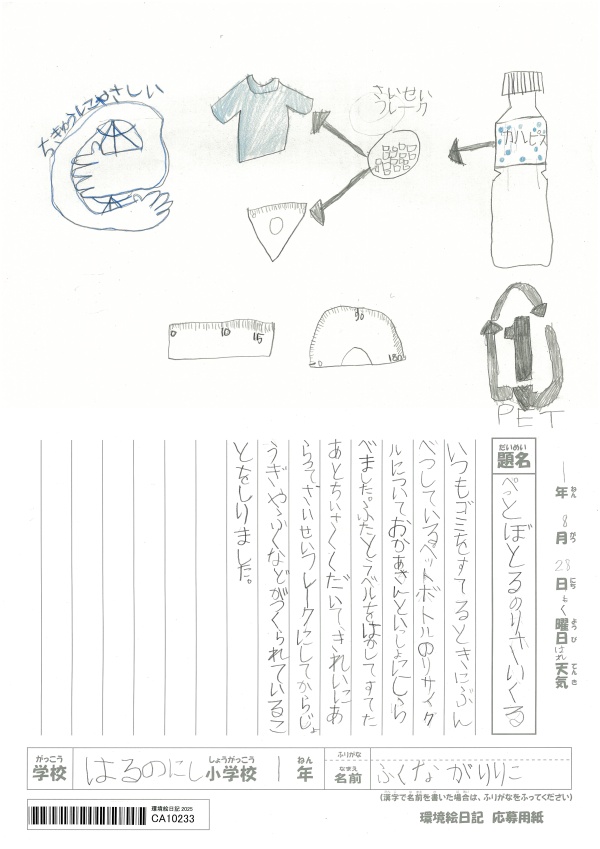 ちきゅうにやさしい
さいせい
フレーク
カルピス
0 10 15
0 90 180
1
PET
だいめい
題名
ぺっとぼとるのりさいくる
1年 8月 28日 もく曜日 はれ 天気
ねん がつ にち ようび てんき
いつもゴミをすてるときにぶん
べつしているペットボトルのリサイク
ルについておかあさんといっしょにしら
べました。ふたとラベルをはがしてすてた
あとちいさくくだいてきれいにあ
らってさいせいフレークにしてからじょ
うぎやふくなどがつくられているこ
とをしりました。
がっこう
学校
はるのにし
しょうがっこう
小学校
1
ねん
年
ふりがな
なまえ
名前
(漢字で名前を書いた場合は、ふりがなをふってください)
環境絵日記 2025
CA10233
環境絵日記 応募用紙